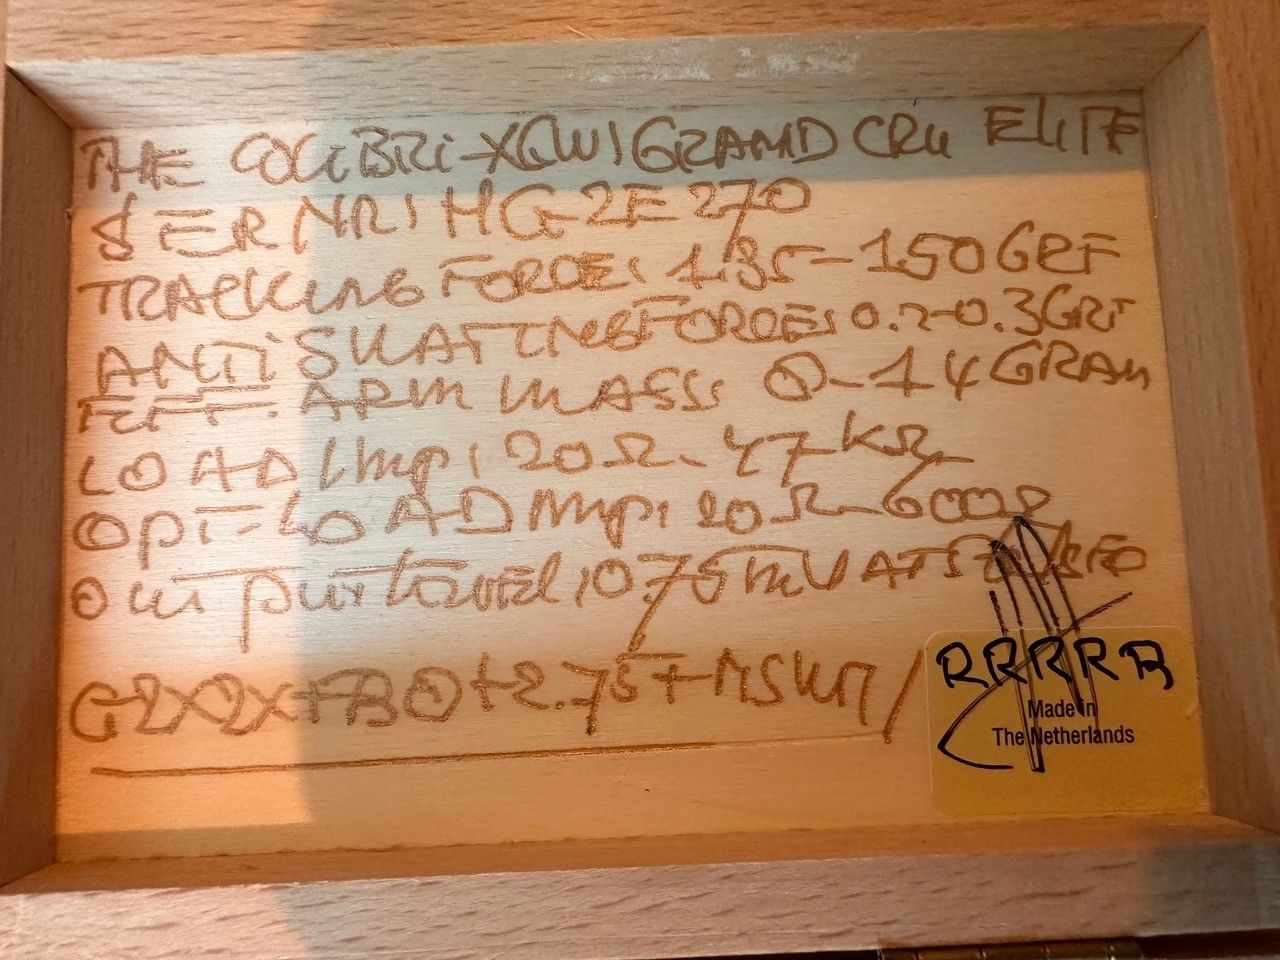 THE COLIBRI-XGW/GRAND CRU ELITE
SER NR: HG-2E270
TRACKING FORCE: 1.35-1.50 GRF
ANTI SKATINGFORCE: 0.2-0.3GRF
EFF. ARM MASS: 0-14 GRAM
LOAD Imp: 20Ω-47KΩ
OPT-LOAD Imp: 20Ω-600Ω
Output Level: 0.75mV AT
RRRRR
Made in
The Netherlands